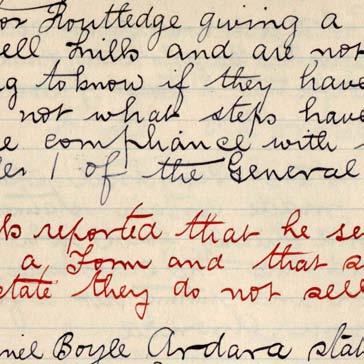 or Routledge giving a
ell mills and are not
g to know if they have
not what steps have
e compliance with
les 1 of the General
ls reported that he se
a Form and that s
state they do not sell
niel Boyle Ardara sta